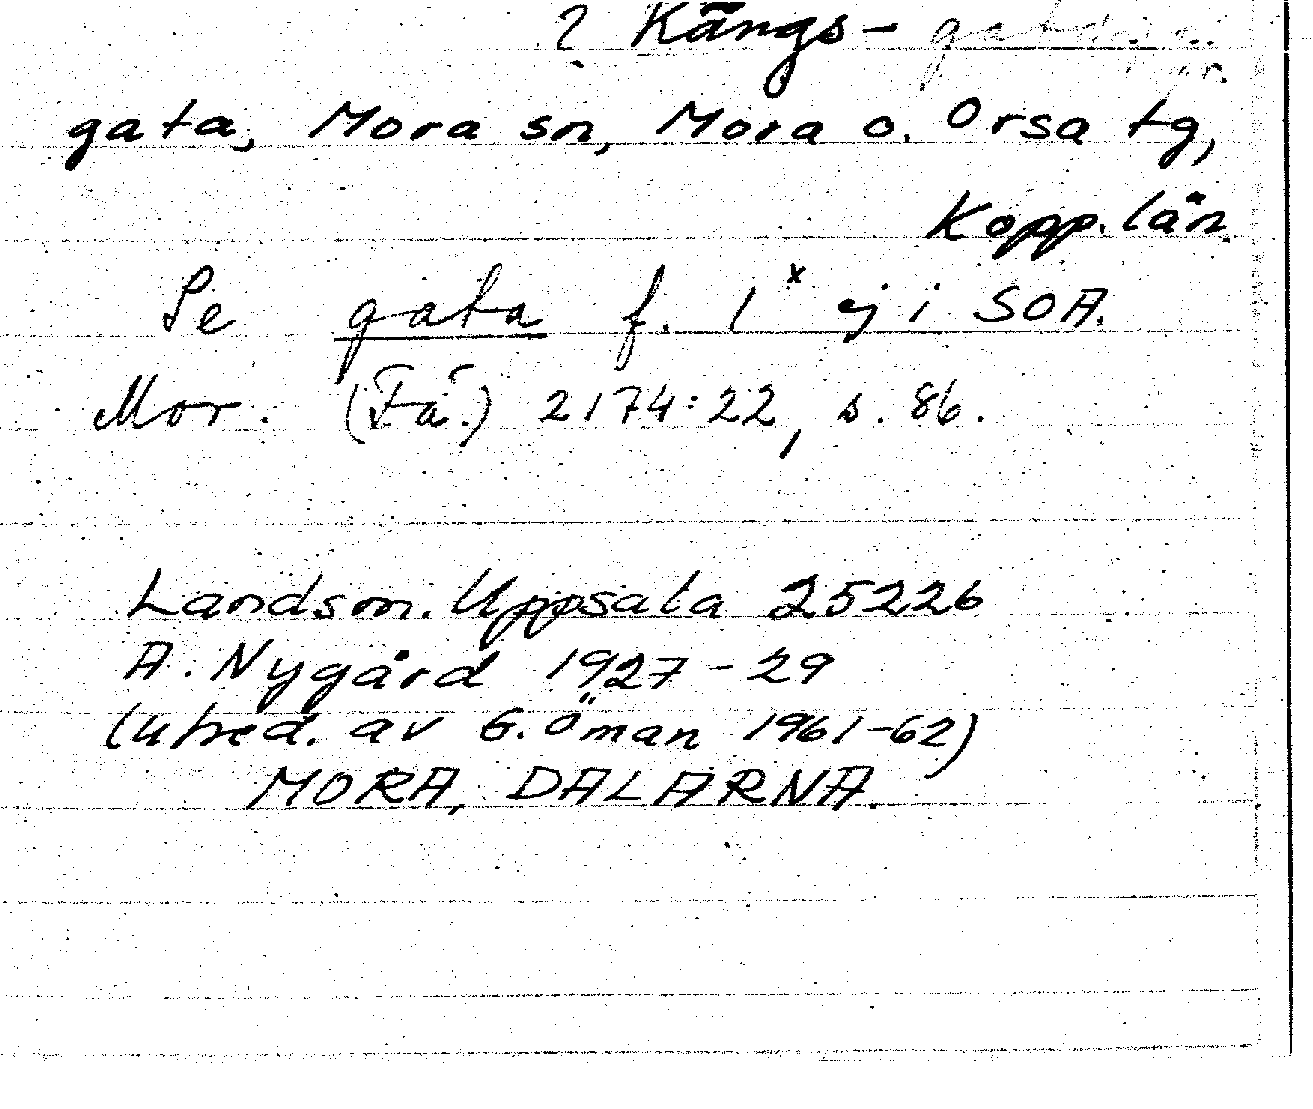 ? Kängs-
gata, Mora sn, Mora o. Orsa tg,
Kopp. län
Se gata f. 1 x ej i SOA.
Mor. (Få.) 2174:22, s. 86.
Landsm. Uppsala 25226
A. Nygård 1927-29
(utred. av G. Öman 1961-62)
MORA, DALARNA.